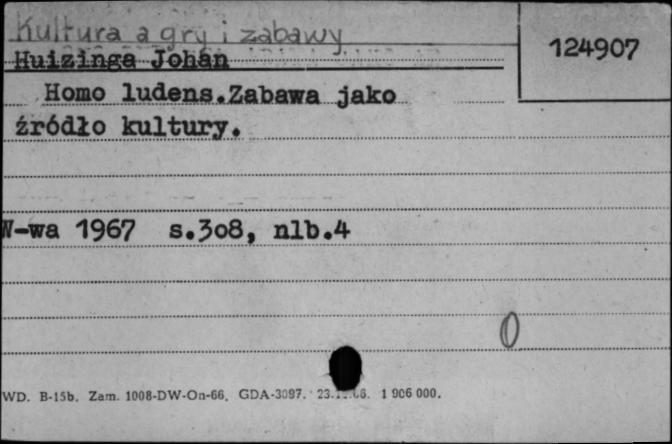 Kultura a gry i zabawy
124907
Huizinga Johan
Homo ludens.Zabawa jako
źródło kultury.
W-wa 1967 s.3o8, nlb.4
0
WD. B-15b. Zam. 1008-DW-On-66. GDA-3097. 1 906 000.